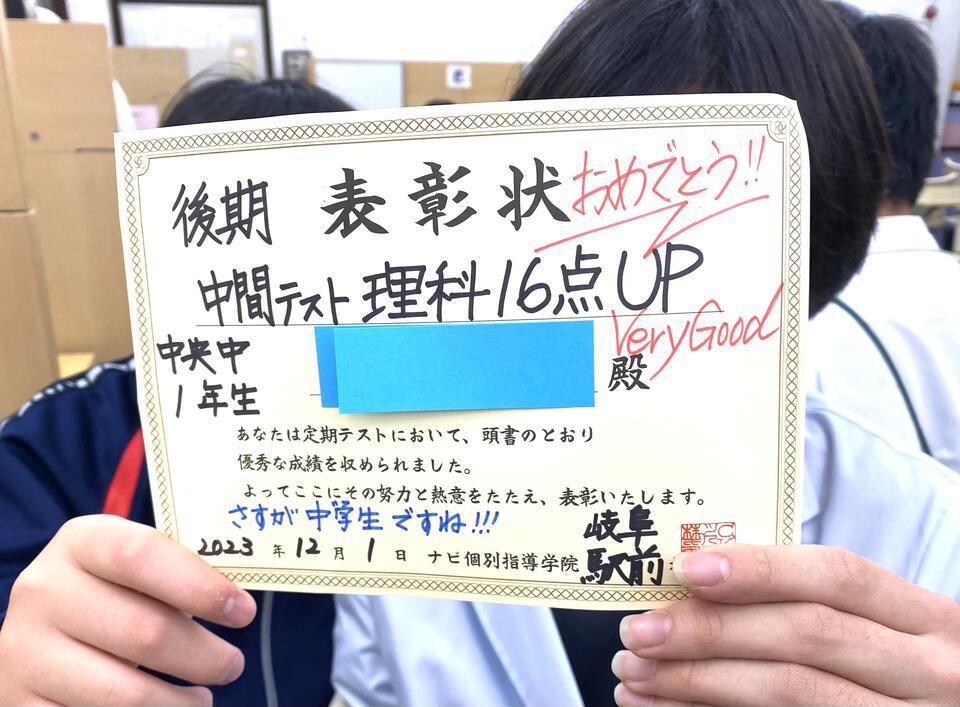 後期 表彰状 おめでとう!!
中間テスト 理科 16点UP
Very Good
中央中
1年生
殿
あなたは定期テストにおいて、頭書のとおり
優秀な成績を収められました。
よってここにその努力と熱意をたたえ、表彰いたします。
さすが中学生ですね!!!
2023年12月1日 ナビ個別指導学院 岐阜
駅前